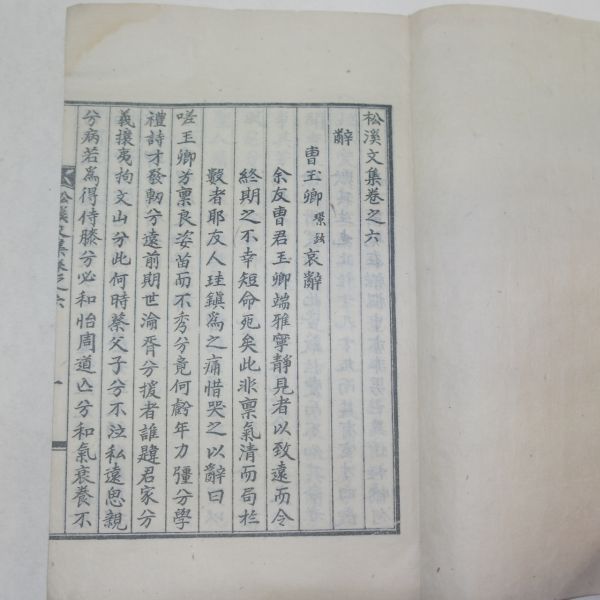 松溪文集卷之六
辭
曺玉卿 璨鉉 哀辭
余友曺君玉卿端雅寧靜見者以致遠而今
終期之不幸短命死矣此非禀氣清而局於
數者耶友人珪鎭爲之痛惜哭之以辭曰
嗟玉卿兮禀良姿苗而不秀兮竟何齡年力彊兮學
禮詩才發軔兮遠前期世淪胥兮援者誰韙君家兮
義攘夷拘文山兮此何時蔡父子兮不泣私遠思親
兮病若爲得侍膝兮必和怡周道亾兮和氣衰養不
松溪文集卷之六
一